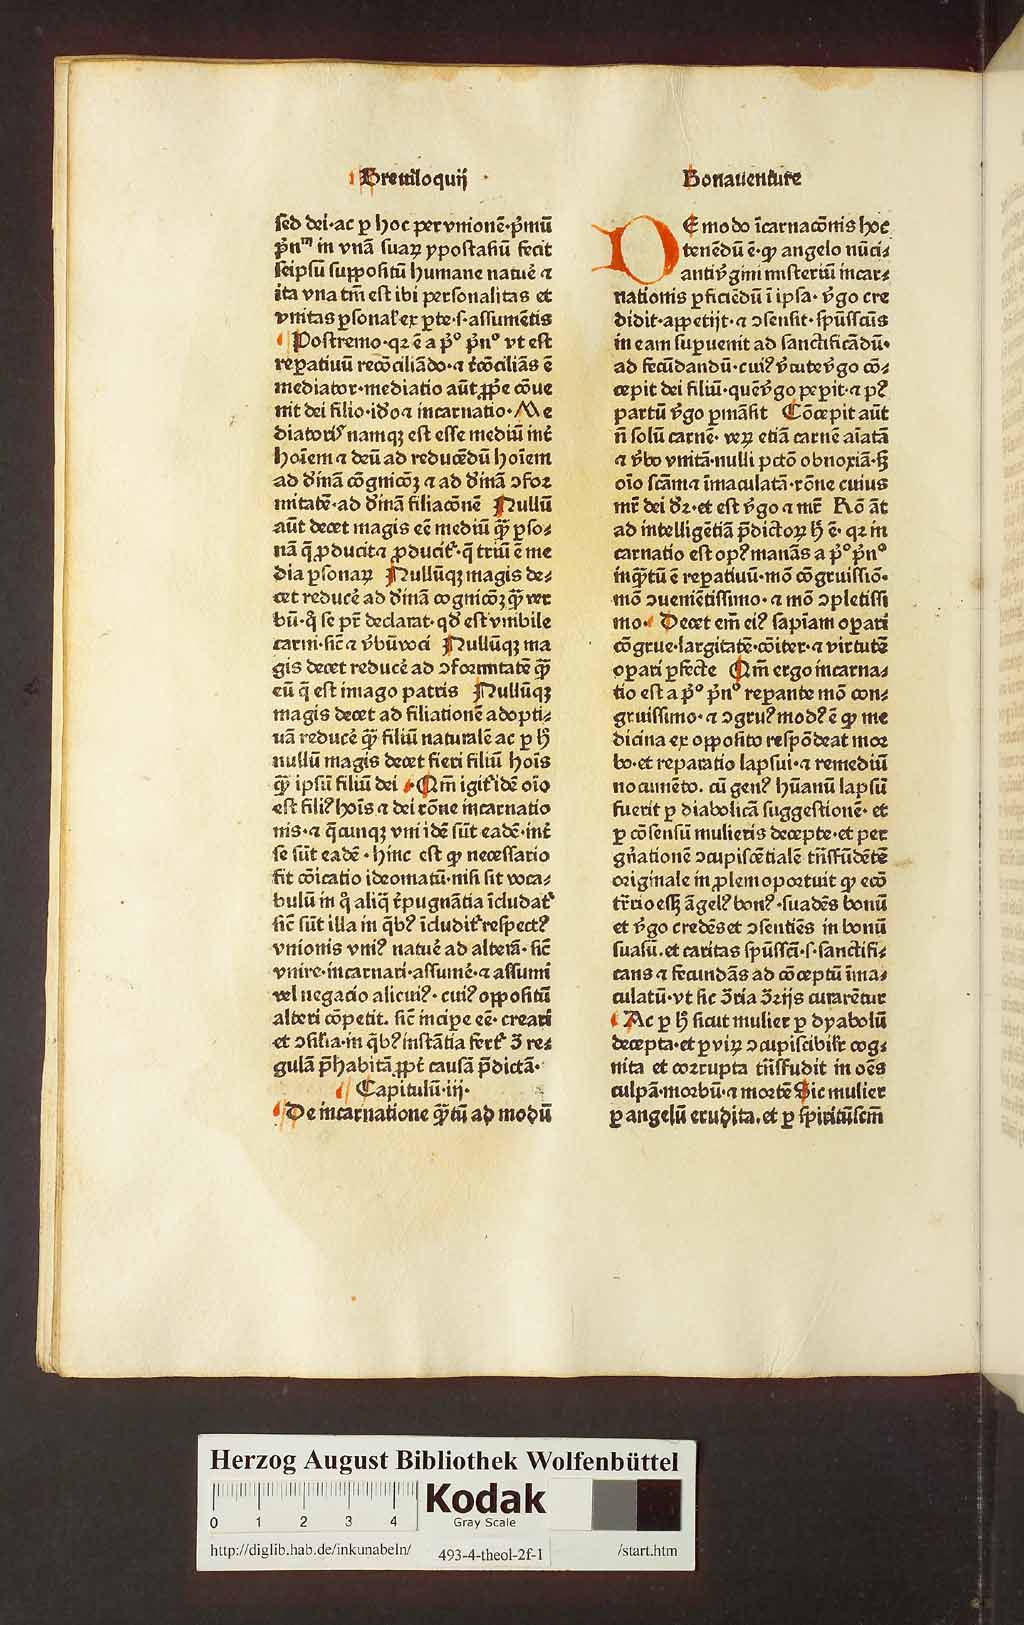 Breuiloquij
Bonauenture
sed dei·ac ꝑ hoc per vnionē·pͥmū
pͥnᵐ in vnā suaꝝ ypostasiū fecit
seip̄sū suppositū humane natuē ⁊
ita vna tm̄ est ibi personalitas et
vnitas ꝑsonał·ex ꝑte·s·assumētis
Postremo·qꝛ ē a pͥº pͥnº vt est
reparatiuū recōciliādo·⁊ rͨōciliās ē
mediator·mediatio aūt ꝓpͥe cōue
nit dei filio·idº⁊ incarnatio·Me
diatorꝭ namqꝫ est esse mediū int̄
hoīem ⁊ deū ad reducēdū hoīem
ad dͥinā cōgnicōꝫ ⁊ ad dͥinā ↄfor
mitatē·ad dͥinā filiacōnē Nullū
aūt decet magis eē mediū qͣꝫ ꝑso-
nā q̄ ꝓducit⁊ ꝓducit᷑·q̄ triū ē me
dia ꝑsonaꝝ Nullūqꝫ magis de-
cet reducē ad dͥinā cognicōꝫ qͣꝫ ver
bū·qͦ se pr̄ declarat·qd̄ est vnibile
carni·sic̄ ⁊ v̄bū voci Nullūqꝫ ma
gis decet reducē ad ↄformitatē qͣꝫ
eū q̄ est imago patris Nullūqꝫ
magis decet ad filiationē adopti-
uā reducē qͣꝫ filiū naturalē ac ꝑ hͦ
nullū magis decet fieri filiū hoīs
qͣꝫ ip̄sū filiū dei · Qm̄ igit᷑ idē oīo
est filiꝰ hoīs ⁊ dei rōne incarnatio
nis·⁊ q̄cunqꝫ vni idē sūt eadē·int̄
se sūt eadē·hinc est ꝙ necessario
fit cōicatio ideomatū·nisi sit voca-
bulū in qͦ aliqͣ rͤpugnātia īcludat᷑
sic̄ sūt illa in qͥbꝰ īcludit᷑ respectꝰ
vnionis vniꝰ natuē ad alterā·sic̄
vnire·incarnari·assumē·⁊ assumi
vel negacio alicuiꝰ·cuiꝰ oppositū
alteri cōpetit. sic̄ incipe eē·creari
et ↄsilia·in qͥbꝰ instātia fert᷑ ↄ̄ re-
gulā p̄habitā ꝓpt̄ causā p̄dictā·
Capitulū·iij·
De incarnatione qͣꝫtū ad modū
DE modo īcarnacōnis hoc
tenēdū ē·ꝙ angelo nūci-
anti v̄gini misteriū incar-
nationis ꝑficiēdū ī ipsa·v̄go cre
didit·appetijt·⁊ ↄsensit·spūsscūs
in eam suꝑuenit ad sanctificādū·
ad fecūdandū·cuiꝰ v̄tute v̄go cō-
cepit dei filiū·quē v̄go peperit·⁊ pꝰ
partū v̄go ꝑmāsit Cōcepit aūt
n̄ solū carnē· veꝝ etiā carnē aīatā
⁊ v̄bo vnitā·nulli pctō obnoxiā·sꝫ
oīo scāmā īmaculatā·rōne cuius
mr̄ dei dꝛ·et est v̄go ⁊ mr̄ Rō āt
ad intelligētiā p̄dictoꝝ hͦ ē·qꝛ in
carnatio est opꝰ manās a pͥº pͥnº
inqͣꝫtū ē reparatiuū·mō cōgruissiō·
mō ↄuenientissimo·⁊ mō ↄpletissi
mo· Decet em̄ eiꝰ sapīam oꝑari
cōgrue·largitatē·cōiter·⁊ virtutē
oꝑari ꝑfecte Qm̄ ergo incarna-
tio est a pͥº pͥnº reparante mō con-
gruissimo·⁊ ↄgruꝰ modꝰ ē ꝙ me
dicina ex opposito respōdeat mor
bo·et reparatio lapsui·⁊ remediū
nocumēto. cū genꝰ hūanū lapsū
fuerit ꝑ diabolicā suggestionē·et
ꝑ cōsensū mulieris decepte·et per
gn̄ationē ↄcupiscētialē trāsfūdētē
originale in ꝓlem oportuit ꝙ ecō
tr̄rio esꝫ āgelꝰ bonꝰ·suadēs bonū
et v̄go credēs et ↄsentiēs in bonū
suasū·et caritas spūsscī·s·sanctifi-
cans ⁊ fecundās ad cōceptū īma-
culatū·vt sic ↄ̄ria ↄ̄rijs curarētur
Ac ꝑ hͦ sicut mulier ꝑ dyabolū
decepta·et ꝑ viꝝ ↄcupiscibilr̄ cog-
nita et corrupta trāsfudit in oēs
culpā·morbū·⁊ mortē Sic mulier
ꝑ angelū erudita.et ꝑ spiritūscm̄
Herzog August Bibliothek Wolfenbüttel
0 1 2 3 4
Kodak
Gray Scale
http://diglib.hab.de/inkunabeln/
493-4-theol-2f-1
/start.htm